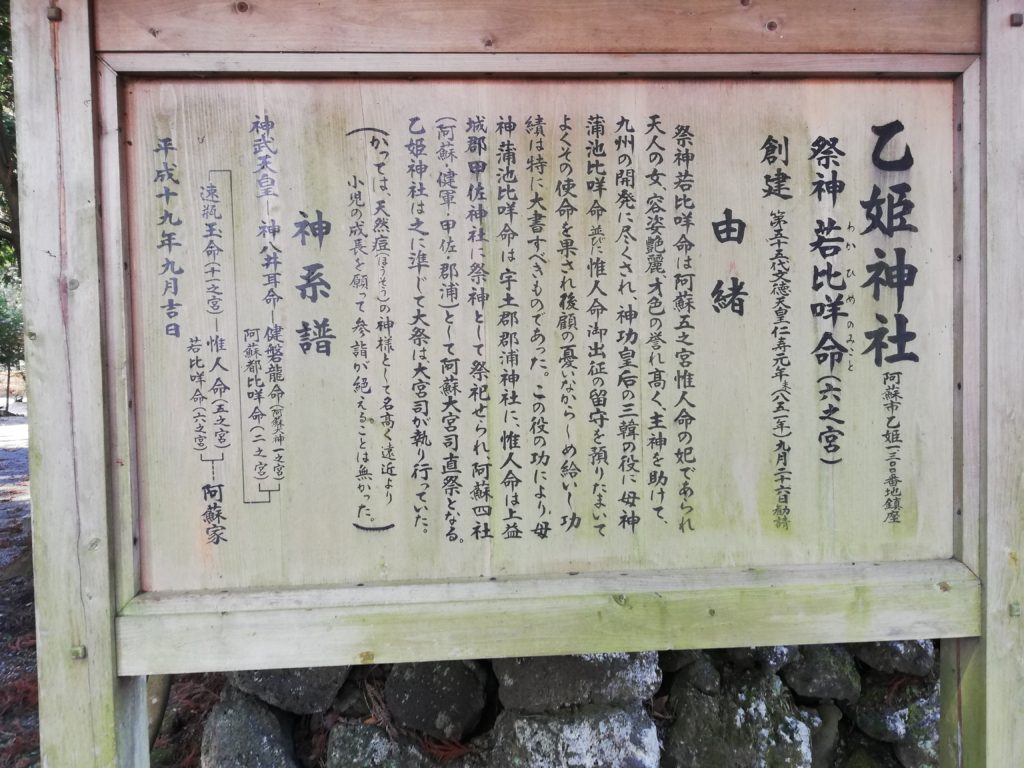 乙姫神社 阿蘇市乙姫一三〇二番地鎮座
祭神 若比咩命(六之宮)
わかひめのみこと
創建 第五十五代文徳天皇仁寿元年(西暦八五一年)九月二十六日勧請
由緒
祭神若比咩命は阿蘇五之宮惟人命の妃であられ
天人の女、容姿艶麗、才色の誉れ高く、主神を助けて、
九州の開発に尽くされ、神功皇后の三韓の役に母神
蒲池比咩命 並びに 惟人命御出征の留守を預りたまいて
よくその使命を果され後顧の憂いなからしめ給いし功
績は特に大書すべきものであった。この役の功により、母
神 蒲池比咩命は宇土郡郡浦神社に、惟人命は上益
城郡甲佐神社に祭神として祭祀せられ阿蘇四社
(阿蘇・健軍・甲佐・郡浦)として阿蘇大宮司直祭となる。
乙姫神社は之に準じて大祭は、大宮司が執り行っていた。
(かっては、天然痘(ほうそう)の神様として名高く遠近より
小児の成長を願って参詣が絶えることは無かった。)
神系譜
神武天皇―神八井耳命―健磐龍命(阿蘇大神一之宮)
阿蘇都比咩命(二之宮)
速瓶玉命(十一之宮)―惟人命(五之宮)
若比咩命(六之宮)
阿蘇家
平成十九年九月吉日